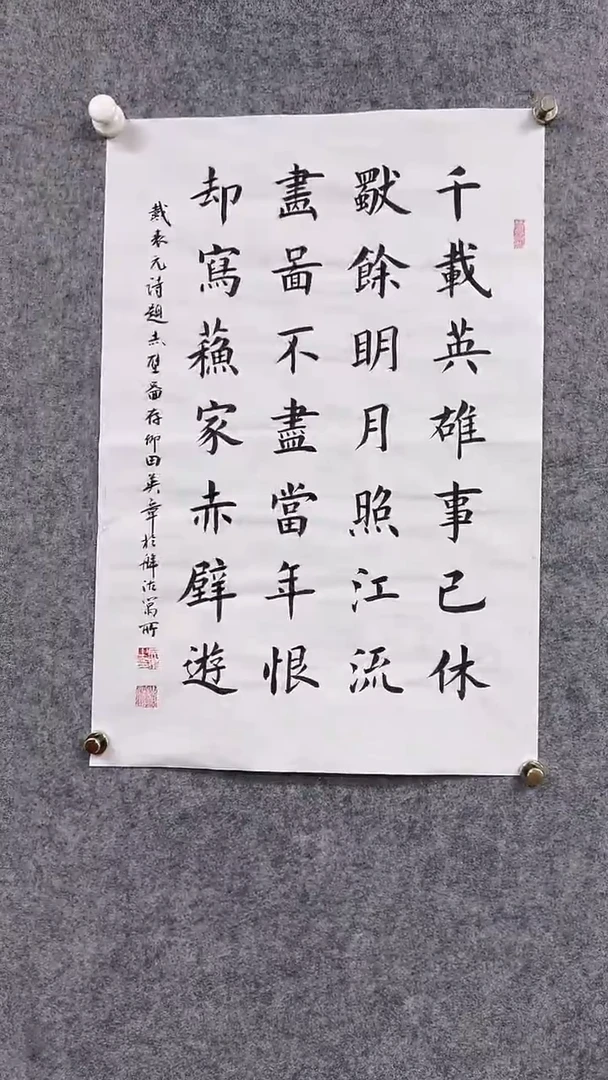 千載英雄事已休
獸餘明月照江流
畫啚不盡當年恨
却寫蘓家赤壁遊
戴表元詩題赤壁啚存仰田英章於津沽寓所